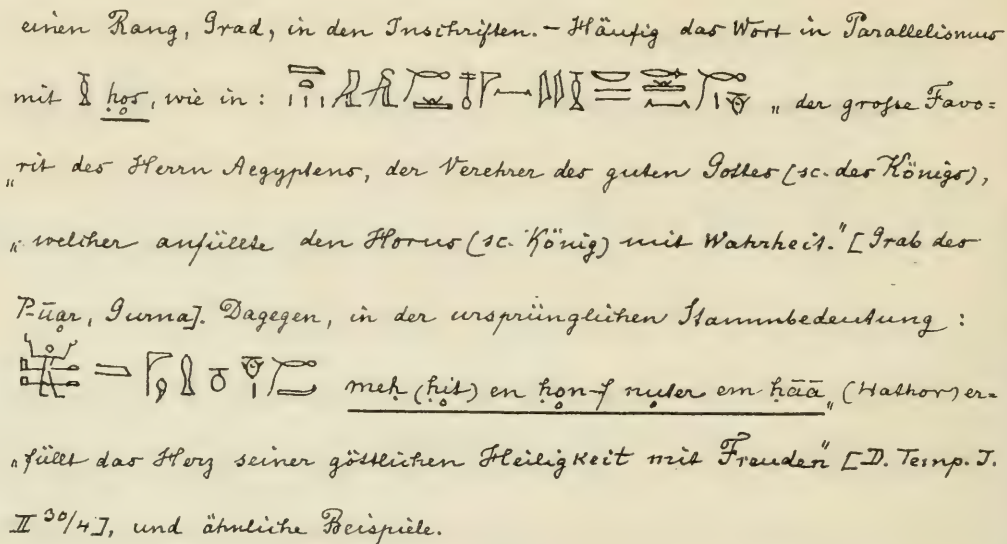 einen Rang, Grad, in den Inschriften. – Häufig das Wort in Parallelismus
mit ḥos, wie in: „der große Favo=
„rit des Herrn Aegyptens, der Verehrer des guten Gottes (sc. des Königs),
„welcher anfüllte den Horus (sc. König) mit Wahrheit.“ [Grab des
P-ūạr, Gurna]. Dagegen, in der ursprünglichen Stammbedeutung:
meḥ (ḥịt) en ḥọn-f nụter em ḥāā „(Hathor) er=
„füllt das Herz seiner göttlichen Heiligkeit mit Freuden“ [D. Temp. I.
II 30/4], und ähnliche Beispiele.